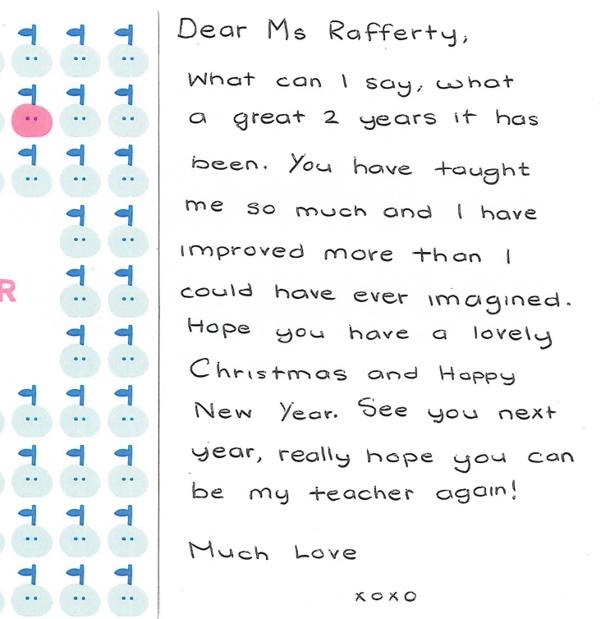 Dear Ms Rafferty,
What can I say, what
a great 2 years it has
been. You have taught
me so much and I have
improved more than I
could have ever imagined.
Hope you have a lovely
Christmas and Happy
New Year. See you next
year, really hope you can
be my teacher again!
Much Love
xoxo
R